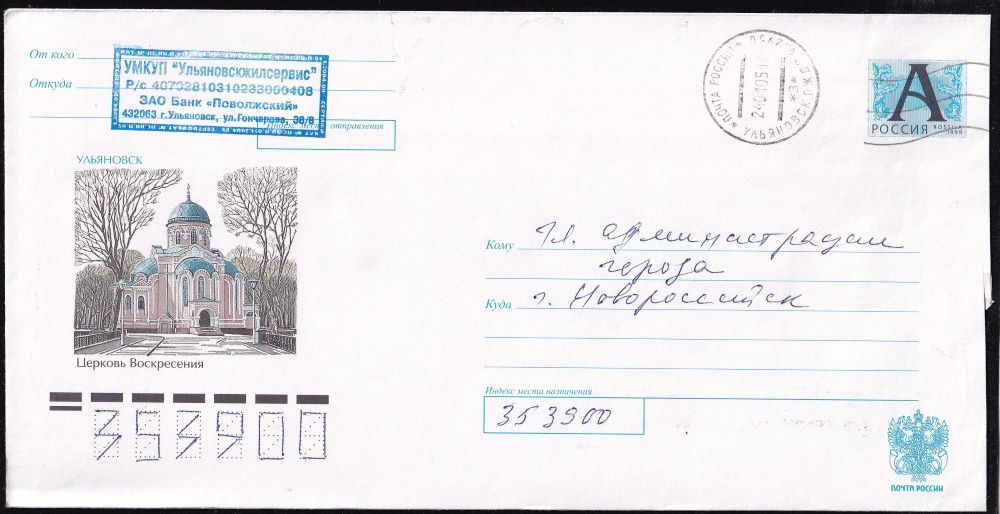 От кого
Откуда
УМКУП "Ульяновскжилсервис"
Р/с 40702810310233000408
ЗАО Банк «Поволжский»
432063 г.Ульяновск, ул.Гончарова, 36/8
Индекс места отправления
ПОЧТА РОССИИ
УЛЬЯНОВСК
*3*
А
РОССИЯ ROSSIJA
1999
УЛЬЯНОВСК
Церковь Воскресения
Кому Гл. администрации
города
Куда г. Новороссийск
Индекс места назначения
353900
353900
ПОЧТА РОССИИ